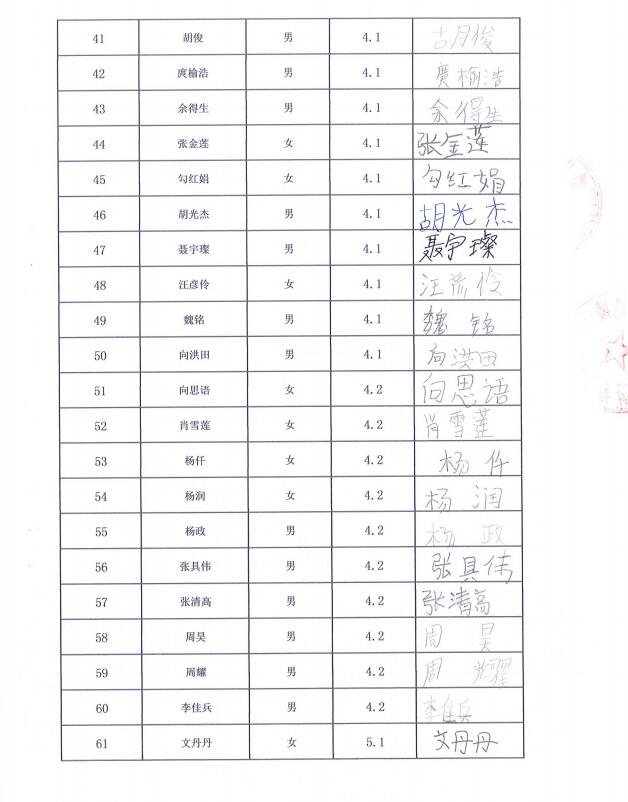 41 胡俊 男 4.1 胡俊
42 庹榆浩 男 4.1 庹榆浩
43 余得生 男 4.1 余得生
44 张金莲 女 4.1 张金莲
45 勾红娟 女 4.1 勾红娟
46 胡光杰 男 4.1 胡光杰
47 聂宇璨 男 4.1 聂宇璨
48 汪彦伶 女 4.1 汪彦伶
49 魏铭 男 4.1 魏铭
50 向洪田 男 4.1 向洪田
51 向思语 女 4.2 向思语
52 肖雪莲 女 4.2 肖雪莲
53 杨仟 女 4.2 杨仟
54 杨润 女 4.2 杨润
55 杨政 男 4.2 杨政
56 张具伟 男 4.2 张具伟
57 张清高 男 4.2 张清高
58 周昊 男 4.2 周昊
59 周耀 男 4.2 周耀
60 李佳兵 男 4.2 李佳兵
61 文丹丹 女 5.1 文丹丹